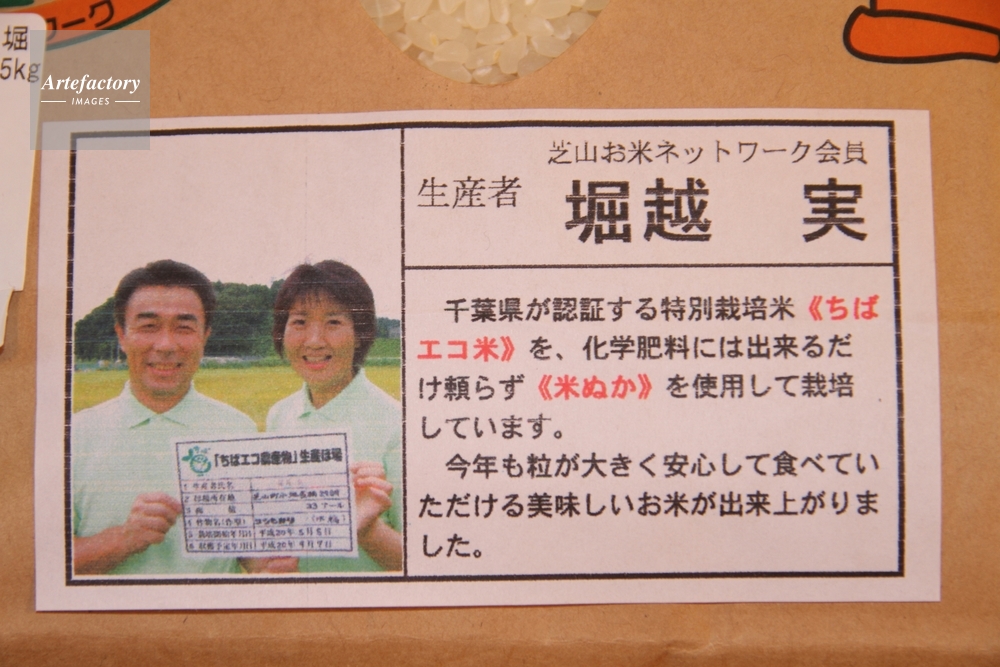 ーク
堀
5kg
Artefactory
IMAGES
芝山お米ネットワーク会員
生産者
堀越 実
千葉県が認証する特別栽培米《ちば
エコ米》を、化学肥料には出来るだ
け頼らず《米ぬか》を使用して栽培
しています。
今年も粒が大きく安心して食べてい
ただける美味しいお米が出来上がりま
した。
「ちばエコ農産物」生産ほ場
1 生産者氏名
2 ほ場所在地
3 面 積 23 アール
4 作物名(作型) コシヒカリ (水稲)
5 栽培開始年月日 平成20年5月5日
6 収穫予定年月日 平成20年9月7日